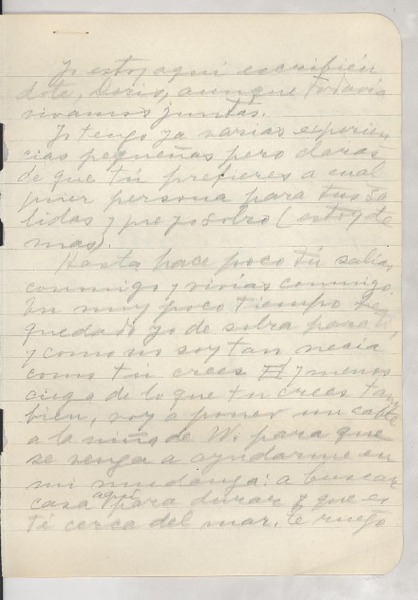 Yo estoy aquí escribién
dote, Doris, aunque todavía
vivamos juntas.
Yo tengo ya varias experien
cias pequeñas pero claras
de que tú prefieres a cual
quier persona para tus sa
lidas y que yo sobro (estoy de
mas).
Hasta hace poco tú salías
conmigo y vivías conmigo.
En muy poco tiempo he
quedado yo de sobra para ti,
y como no soy tan necia
como tú crees y menos
ciega de lo que tu crees tam
bien, voy a poner un cable
a la niña de W. para que
se venga a ayudarme en
mi mudanza: a buscar
casa aquí para durar y que es
té cerca del mar. Te ruego